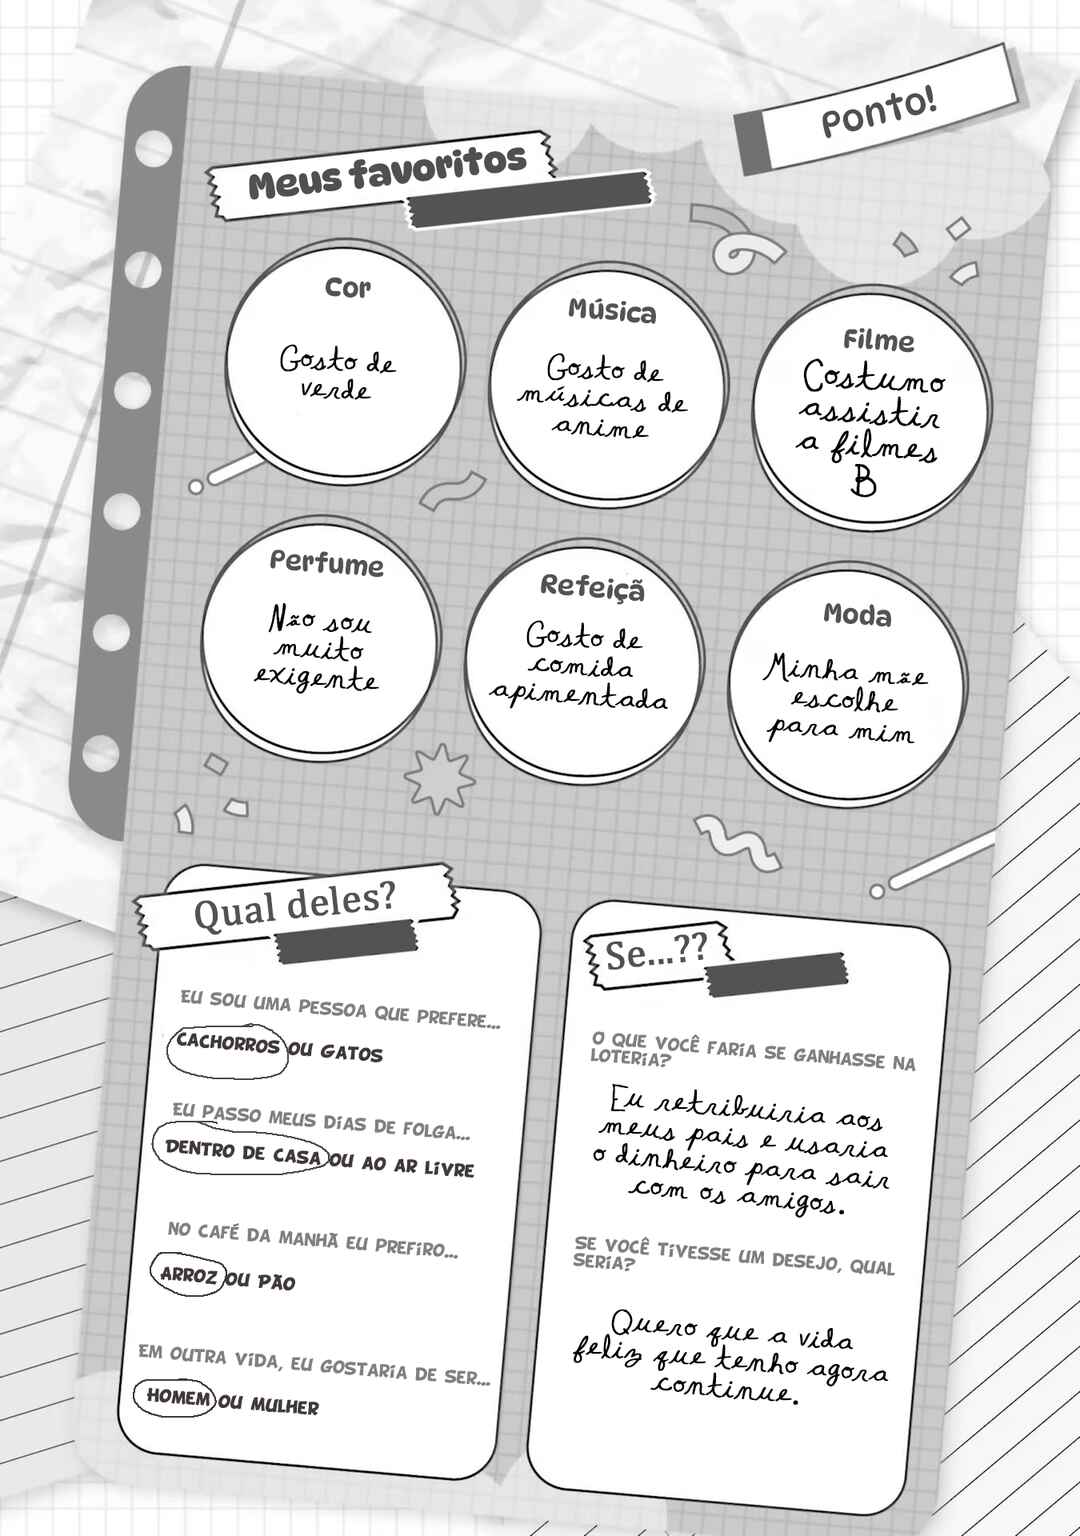 Ponto!
Meus favoritos
Cor
Gosto de
verde
Música
Gosto de
músicas de
anime
Filme
Costumo
assistir
a filmes
B
Perfume
Não sou
muito
exigente
Refeiçã
Gosto de
comida
apimentada
Moda
Minha mãe
escolhe
para mim
Qual deles?
EU SOU UMA PESSOA QUE PREFERE...
CACHORROS OU GATOS
EU PASSO MEUS DIAS DE FOLGA...
DENTRO DE CASA OU AO AR LIVRE
NO CAFÉ DA MANHÃ EU PREFIRO...
ARROZ OU PÃO
EM OUTRA VIDA, EU GOSTARIA DE SER...
HOMEM OU MULHER
Se...??
O QUE VOCÊ FARIA SE GANHASSE NA
LOTERIA?
Eu retribuiria aos
meus pais e usaria
o dinheiro para sair
com os amigos.
SE VOCÊ TIVESSE UM DESEJO, QUAL
SERIA?
Quero que a vida
feliz que tenho agora
continue.